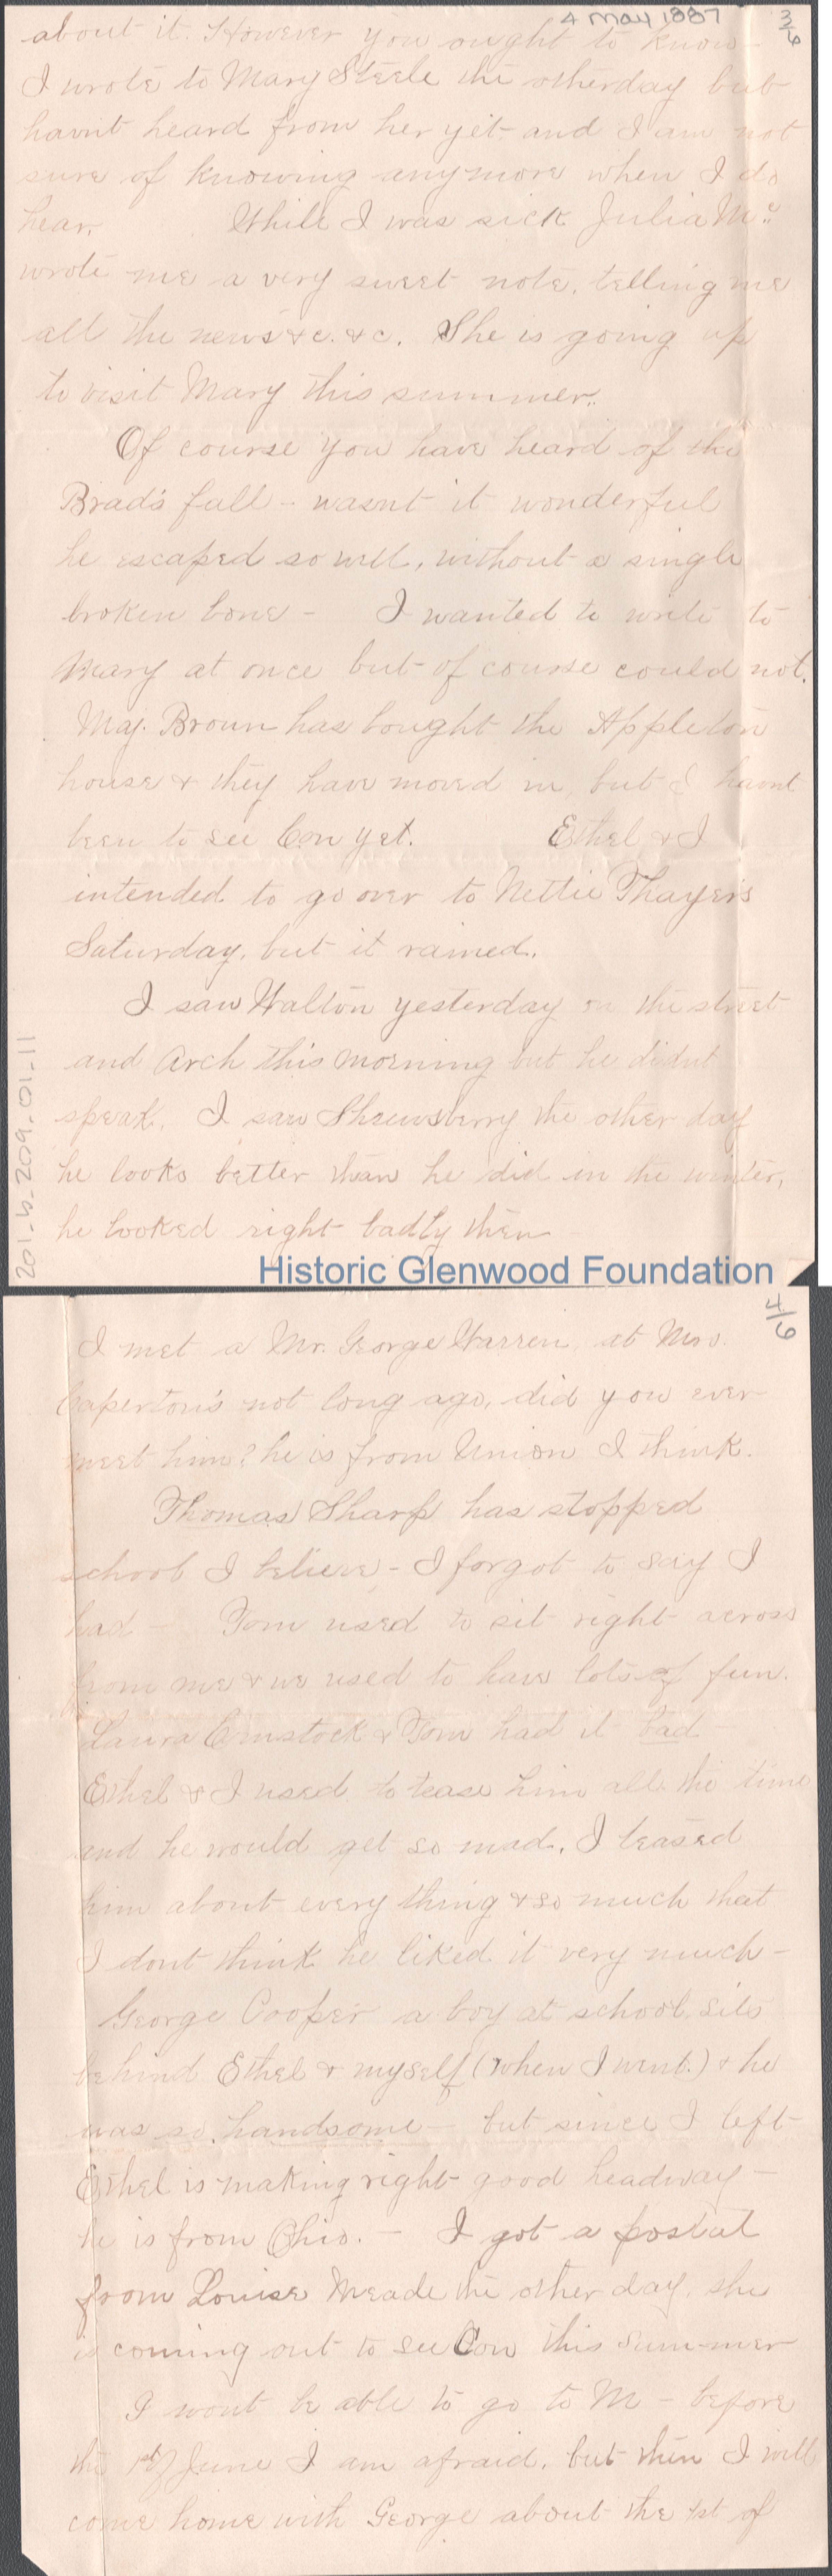 4 May 1887
3/6
about it. However you ought to know
I wrote to Mary Steele the otherday but
havn't heard from her yet and I am not
sure of knowing anymore when I do
hear. While I was sick Julia Mc
wrote me a very sweet note, telling me
all the news &c. &c. She is going up
to visit Mary this summer.
Of course you have heard of the
Brad's fall - wasnt it wonderful
he escaped so well, without a single
broken bone - I wanted to write to
Mary at once but of course could not.
Maj. Broun has bought the Appleton
house & they have moved in, but I havnt
been to see Con yet. Ethel & I
intended to go over to Nettie Thayer's
Saturday, but it rained.
I saw Walton yesterday on the street
and Arch this morning but he didnt
speak. I saw Shrewsberry the other day
he looks better than he did in the winter,
he looked right badly then
201-5-209-01-11
Historic Glenwood Foundation
4/6
I met a Mr. George Warren, at Mrs.
Caperton's not long ago, did you ever
meet him? he is from Union I think.
Thomas Sharp has stopped
school I believe - I forgot to say I
had - Tom used to sit right across
from me & we used to have lots of fun.
Laura Comstock & Tom had it bad
Ethel & I used to tease him all the time
and he would get so mad. I teased
him about every thing & so much that
I dont think he liked it very much -
George Cooper a boy at school sits
behind Ethel & myself (when I went.) & he
was so handsome - but since I left
Ethel is making right good headway -
he is from Ohio. - I got a postal
from Louise Meade the other day. she
is coming out to see Con this summer
I wont be able to go to M - before
the 1st of June I am afraid, but then I will
come home with George about the 1st of